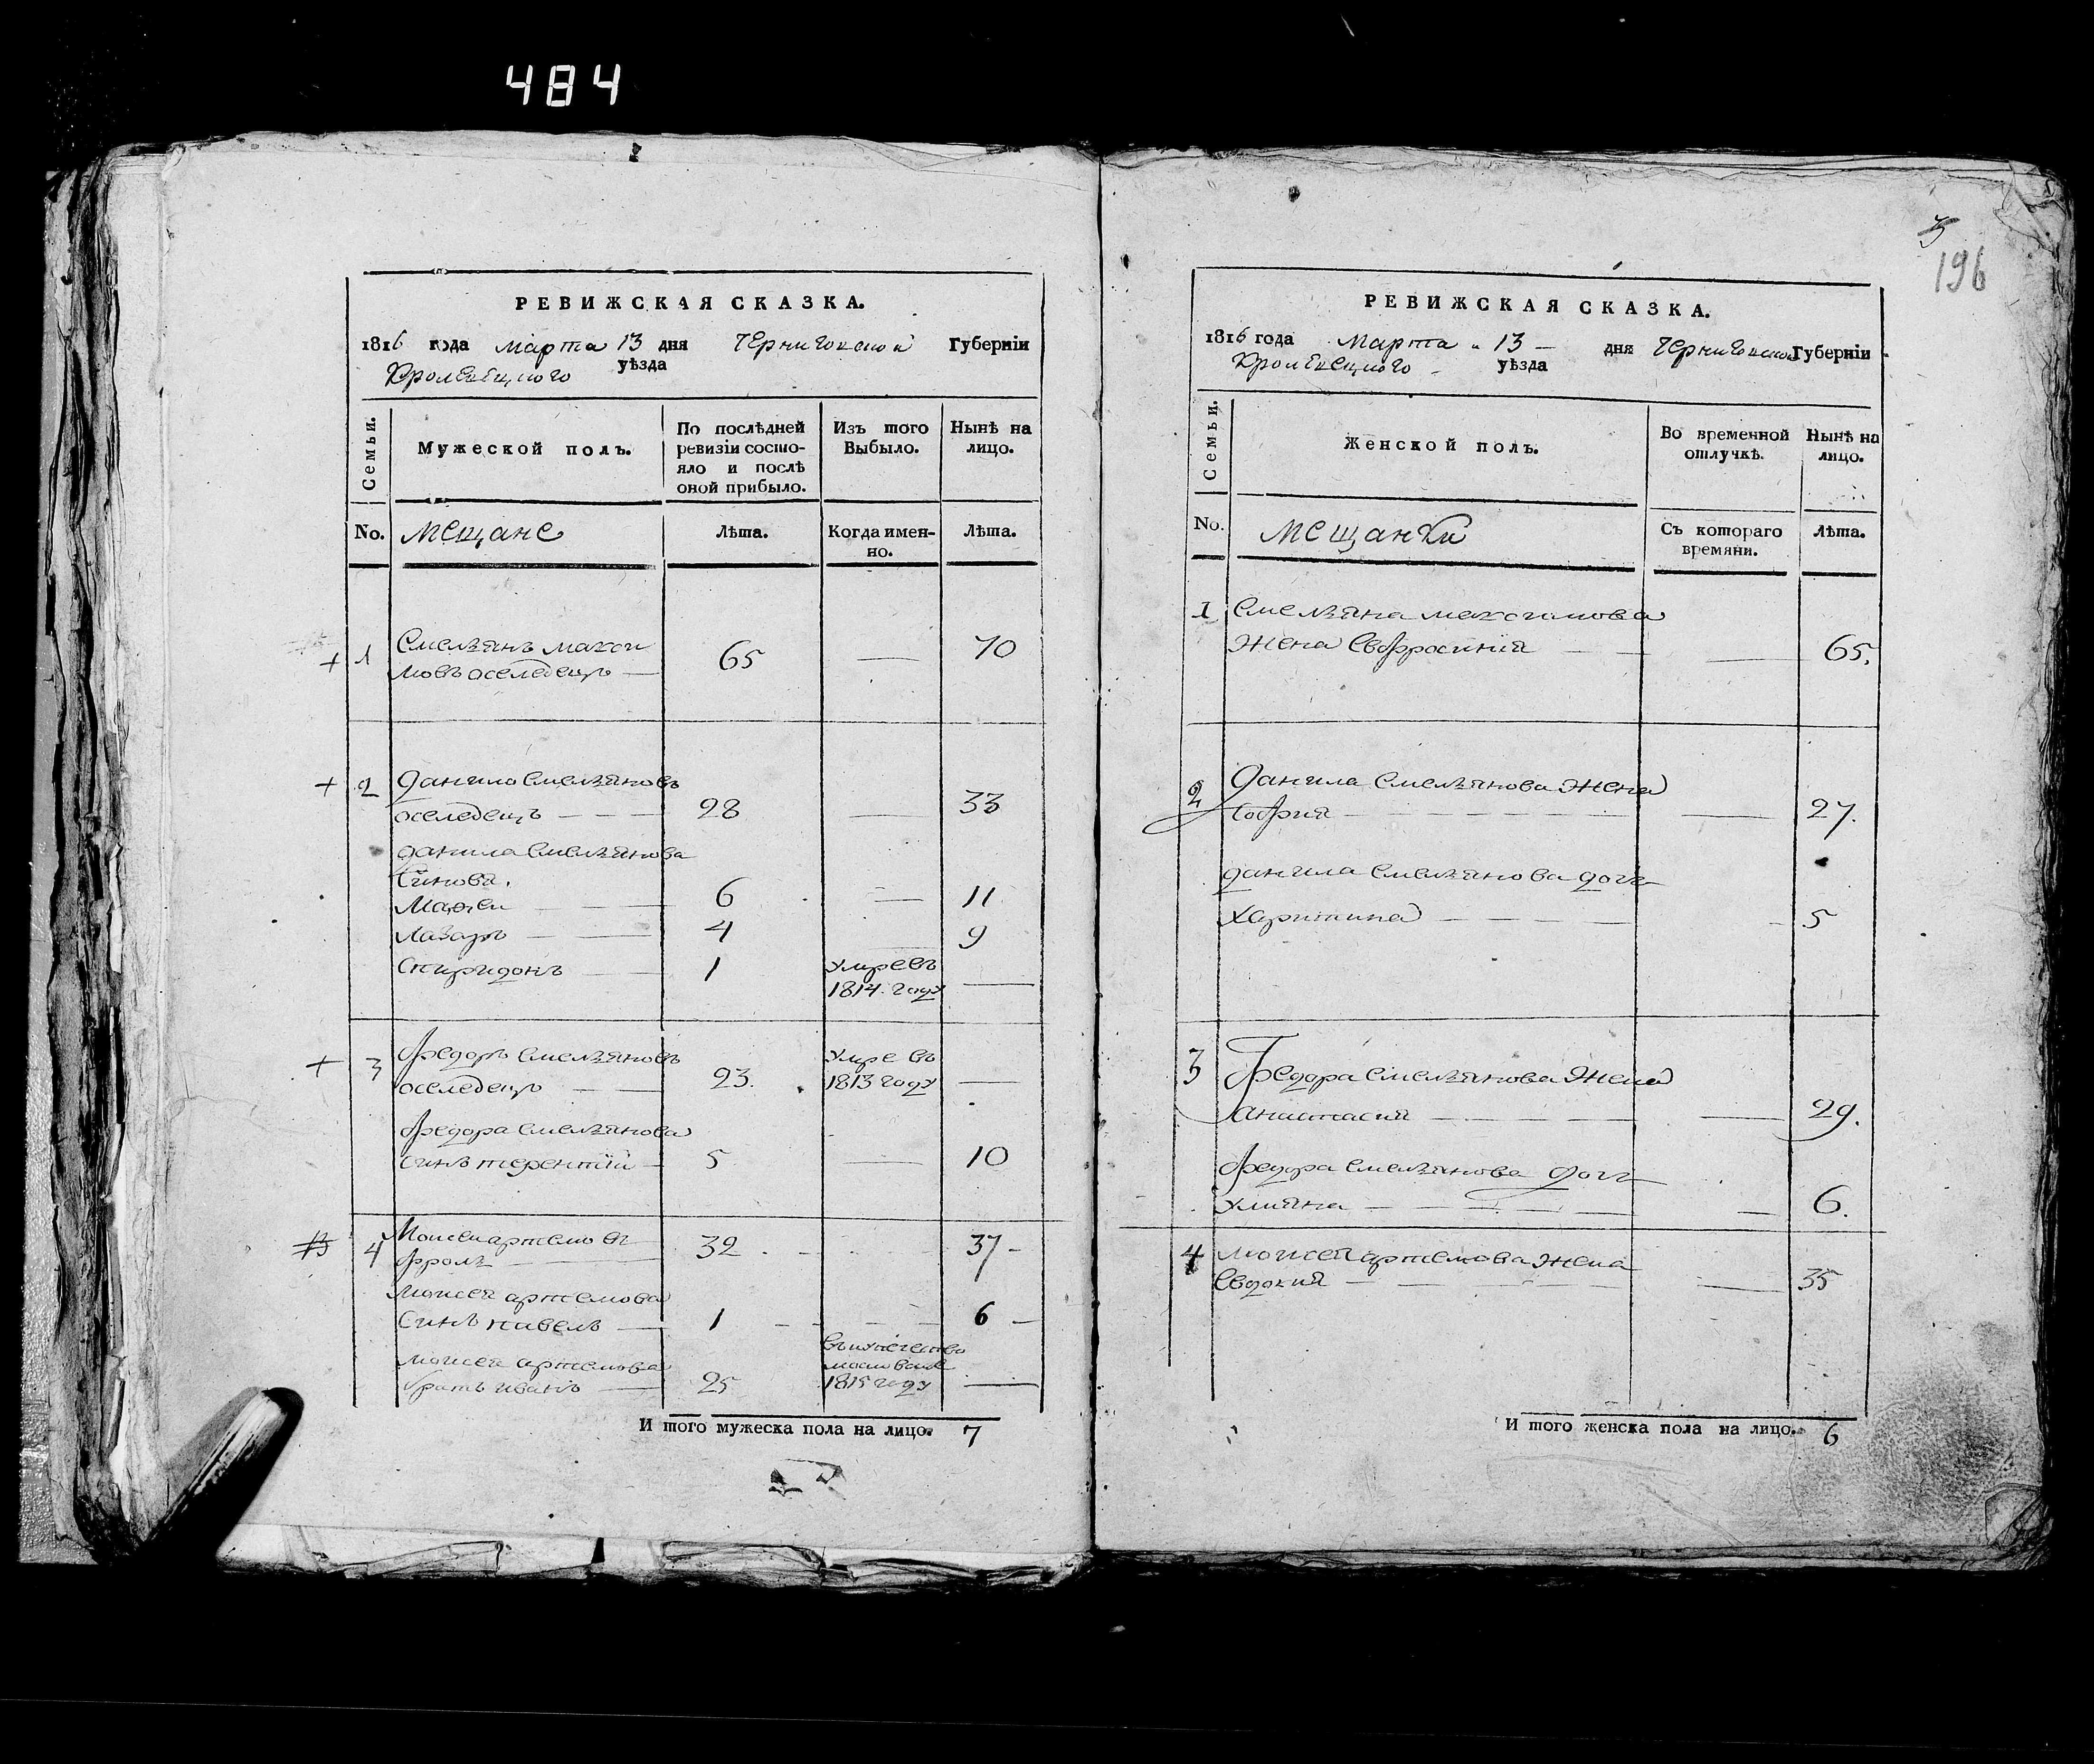 484
РЕВИЖСКАЯ СКАЗКА.
1816 года Марта 13 дня Черниговской Губерніи
Кролевецкого уѣзда
Семьи.
Мужеской полъ.
По послѣдней ревизіи состо-яло и послѣ оной прибыло.
Изъ того Выбыло.
Нынѣ на лицо.
No. Мещане Лѣта. Когда имен-но. Лѣта.
1 Емелянъ макси
мовъ оселедецъ — 65 — 70
2 Данило Емеляновъ
оселедецъ — 28 — 33
данила Емелянова
Синова.
Матвеи — 6 — 11
Лазаръ — 4 9
Спиридонъ — 1 умре въ
1814. году —
3 Федоръ Емеляновъ умре въ
оселедецъ — 23. 1813 году —
Федора Емелянова
синъ терентій — 5 — 10
4 Моисеи артемовъ 32 — 37 —
Фролъ —
Моисея артемова
Синъ павелъ — 1 — 6 —
моисея артемова
братъ иванъ — 25 1815 году —
И того мужеска пола на лицо. 7
3
196
РЕВИЖСКАЯ СКАЗКА.
1816 года Марта 13 — дня Черниговской Губерніи
Кролевецкого уѣзда
Семьи.
Женской полъ.
Во временной отлучкѣ.
Нынѣ на лицо.
No. Мещанки Съ котораго времяни. Лѣта.
1 Емеляна максимова
жена Евфросинія — — 65.
2 Данила Емелянова жена
София — — 27.
данила Емелянова дочь
Харитина — 5
3 Федора Емелянова жена
анастасия — — 29.
Федора Емелянова дочь
улияна — — 6.
4 моисея артемова жена
Евдокия — — 35
И того женска пола на лицо. 6